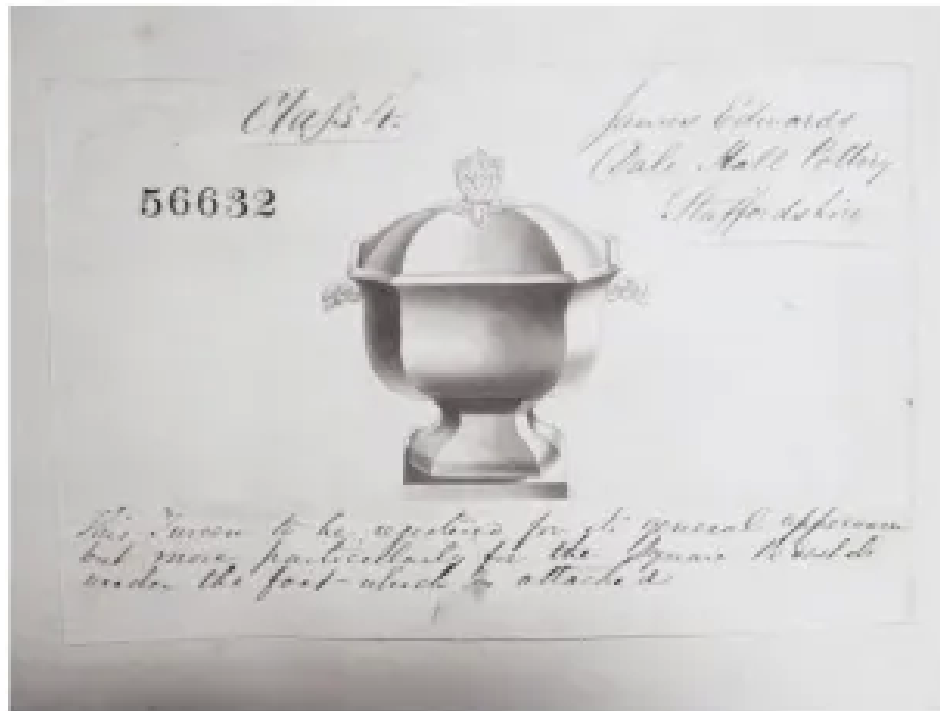 Class 4.
James Edwards
Dale Hall Pottery
Staffordshire
56632
This Tureen to be registered for its general appearance
but more particularly for the Square
under the foot which is attached